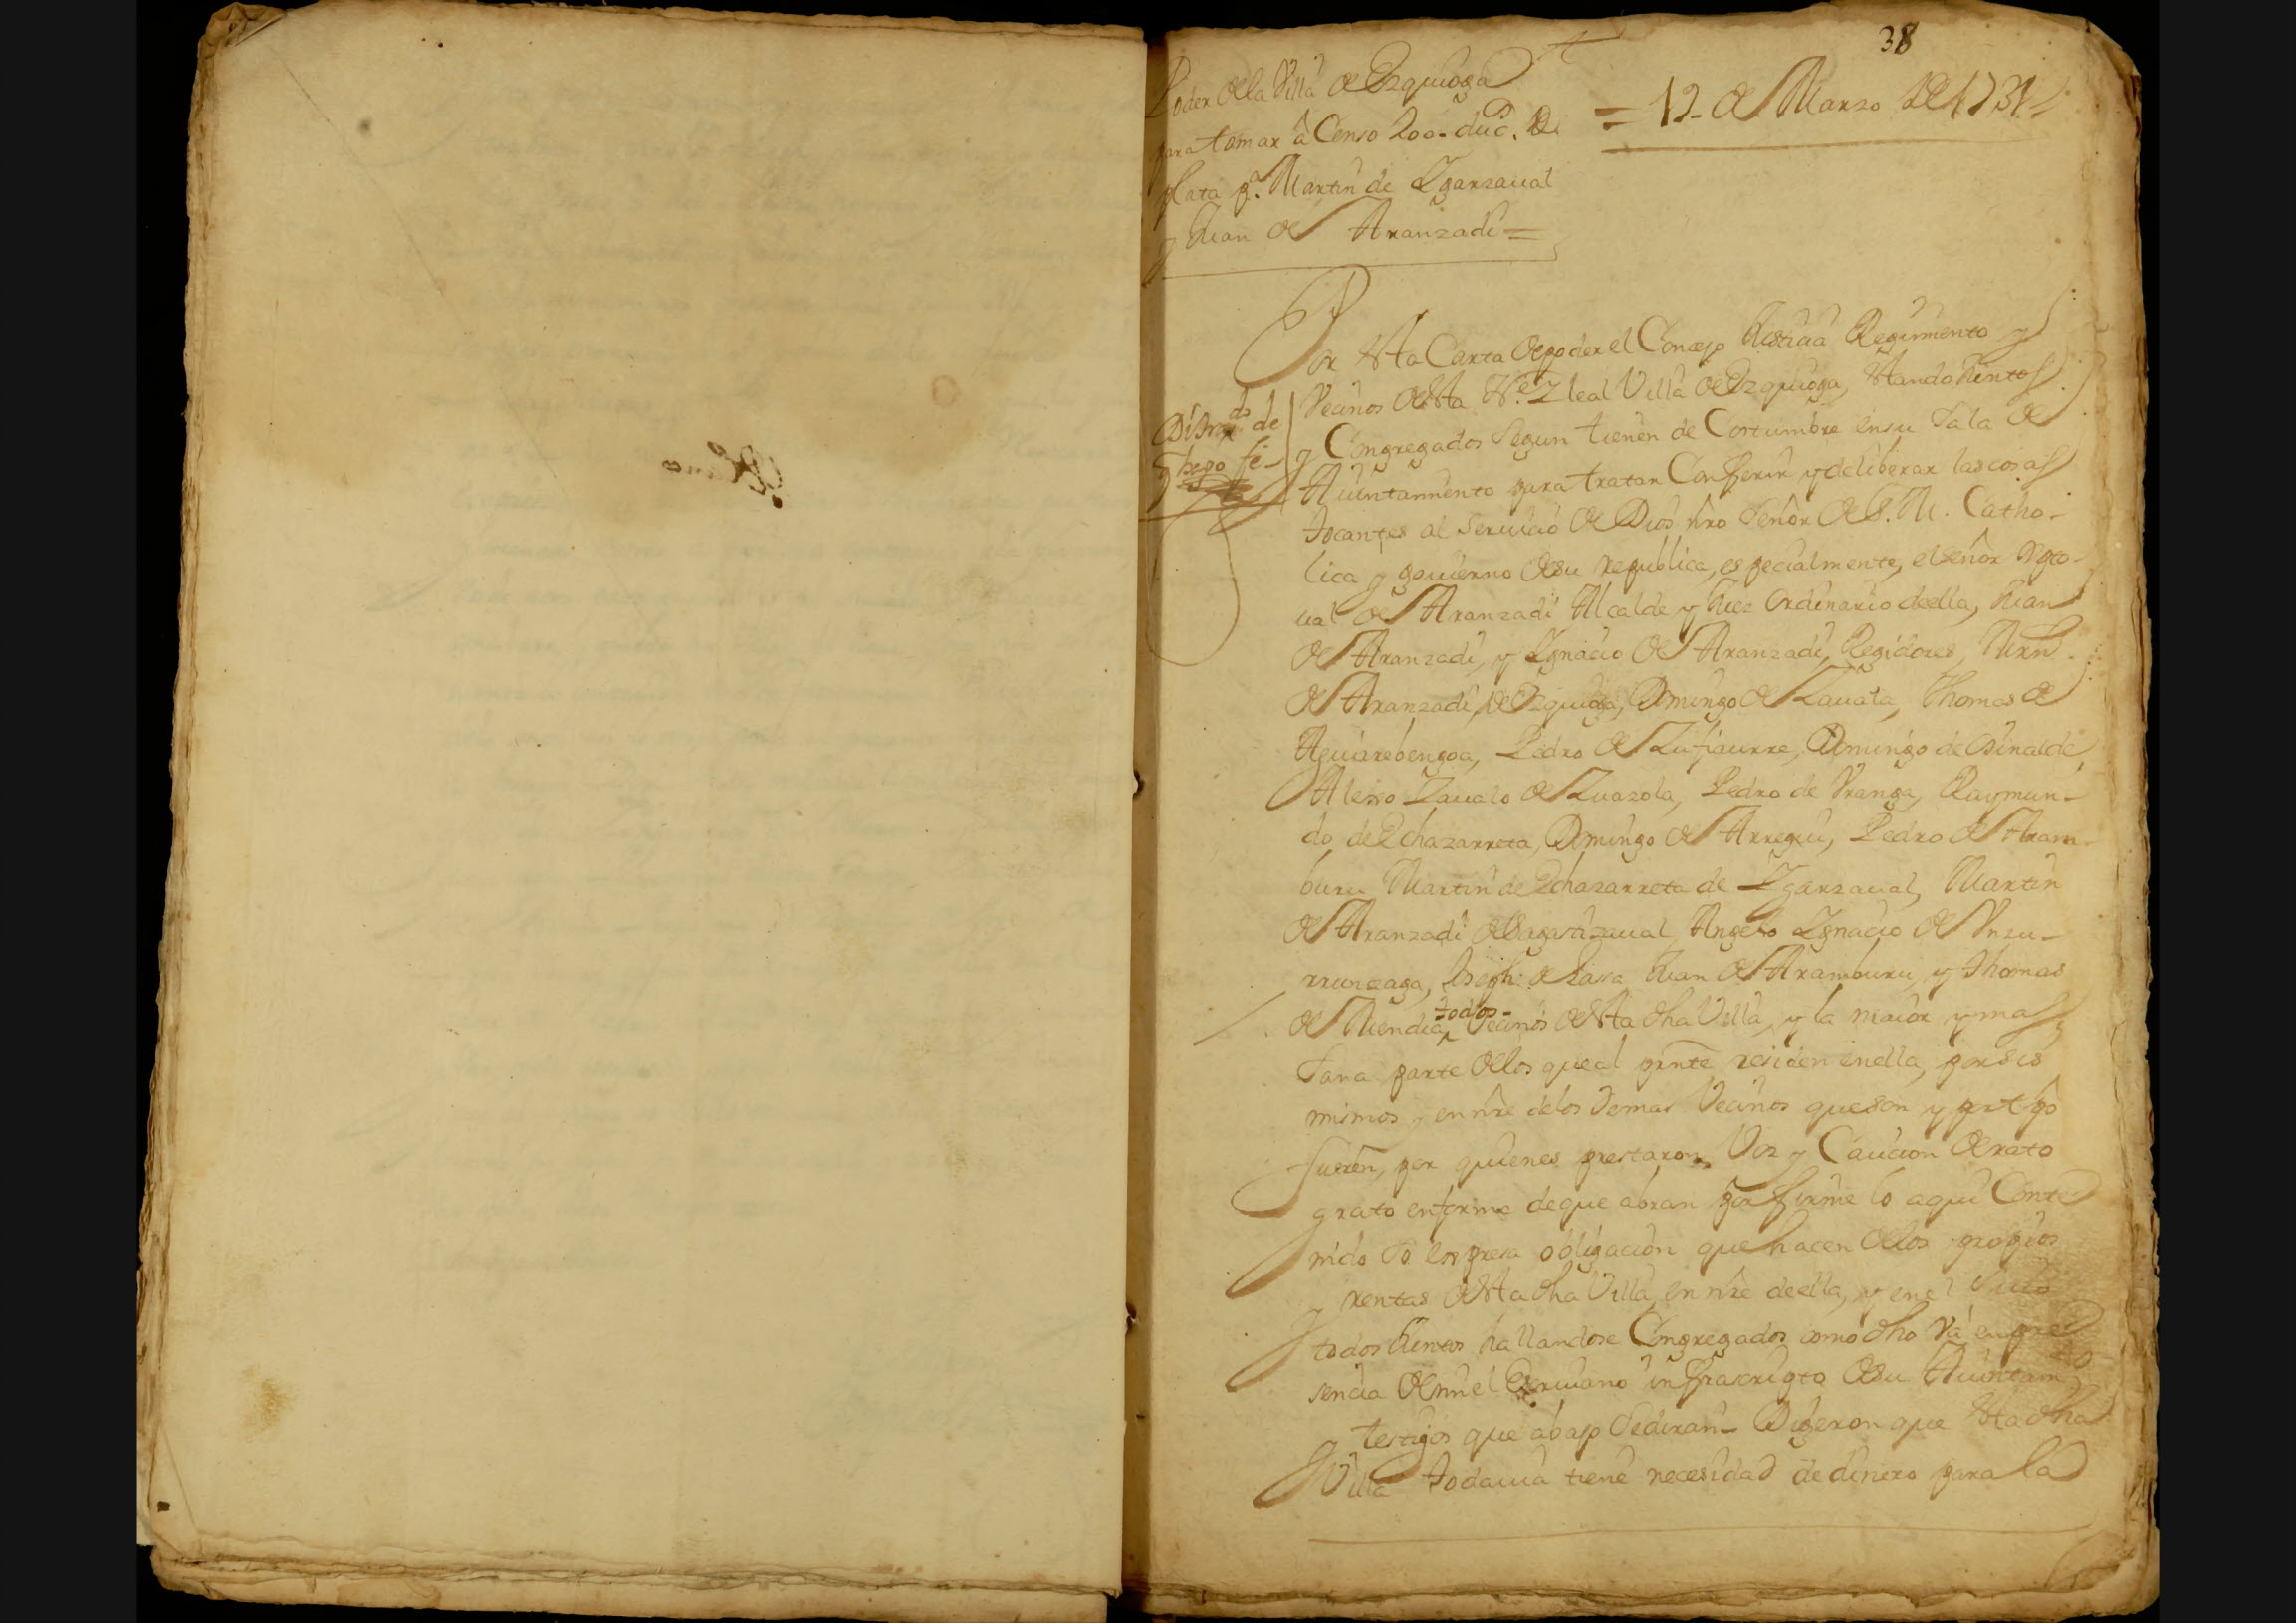 Blanco
38
Poder de la Villa de Ezquioga
para tomar à Censo 200. duc.s de
plata p.a Martin de Ygarzaual
y Juan de Aranzadi =
= 12 de Marzo de 1731
Por esta Carta de poder el Concejo Justicia Regimiento y
Vecinos desta N. e Y leal Villa de Ezquioga, estando Juntos
y Congregados segun tienen de Costumbre en su Sala de
Aiuntamiento para tratar Conferir y deliberar las cosas
tocantes al seruicio de Dios nro Señor de S. M. Catho-
lica y gouierno de su republica, especialmente, el señor
de Aranzadi Alcalde y Juez ordinario de ella, Juan
de Aranzadi, y Ygnacio de Aranzadi, Regidores,
de Aranzadi, de Ezquioga, Domingo de Zauala, Thomas de
Aguirebengoa, Pedro de Domingo de
Alexo Zaualo de Luazola, Pedro de Vranga, Raymun-
do de Echazarreta, Domingo de Arregui, Pedro de Aram-
buru Martin de Echazarreta de Ygarzaual, Martin
de Aranzadi de Sagastizaual Angelo Ygnacio de Vnzu-
rrunzaga, Joseph de Lasa Juan de Aramburu, y Thomas
de Mendia, todos Vecinos desta dha Villa, y la maior y mas
sana parte de los que al prnte residen en ella, por sis
mismos y en nre de los demas Vecinos que son y
fueren, por quienes prestaron Voz y Caucion de rato
grato en forma de que abran por firme lo aqui Conte
nido so expresa obligacion que hacen de los propios
y rentas desta dha Villa, en nre de ella, y en el suio
todos Juntos hallandose Congregados como dho Vá en pre
sencia de mi el Escriuano infrascripto de su Aiuntam.to
y testigos que abajo se diran - Dijeron que esta dha
Villa todauia tiene necesidad de dinero para la